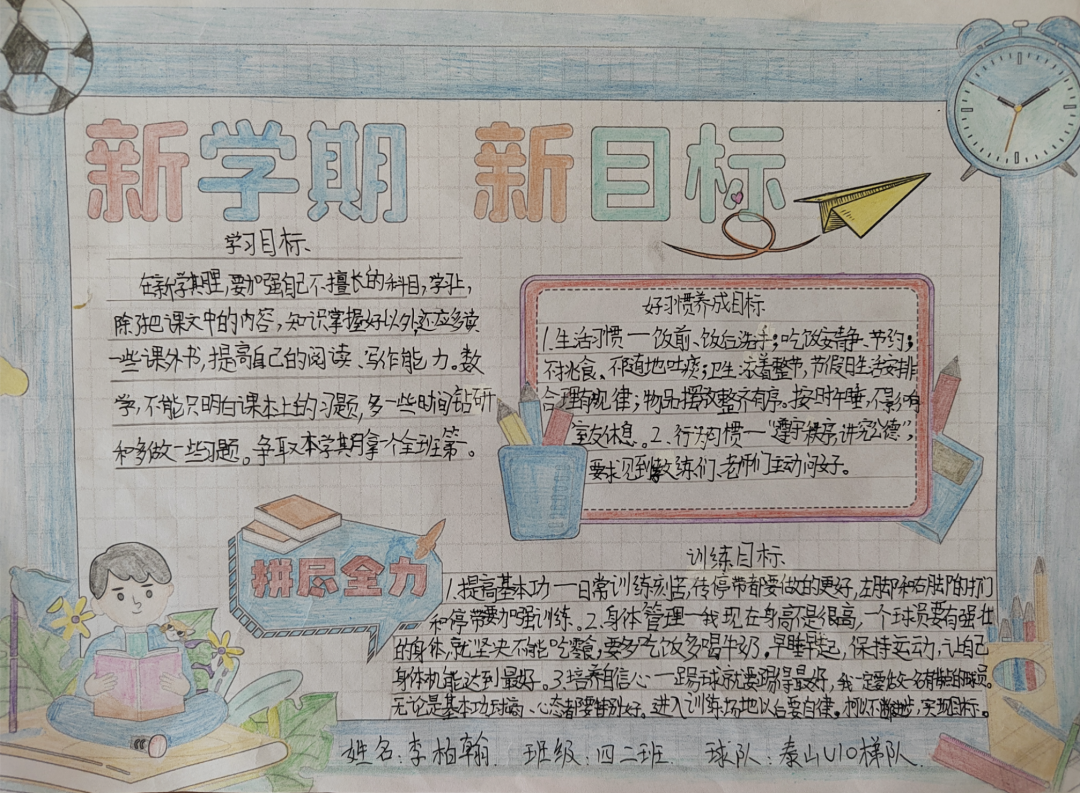 新学期 新目标
学习目标
在新学期里,要加强自己不擅长的科目,学上,
除了把课文中的内容,知识掌握好以外还应多读
一些课外书,提高自己的阅读、写作能力。数
学,不能只明白课本上的习题,多一些时间钻研
和多做一些习题。争取本学期拿个全班第一。
好习惯养成目标
1.生活习惯一饭前、饭后洗手;吃饭安静、节约;
不挑食、不随地吐痰;卫生:衣着整节,节假日生活安排
合理有规律;物品摆放整齐有序。按时午睡,不影响
室友休息。2、行为习惯一“遵守秩序,讲究公德”,
要求见到教练们、老师们主动问好。
拼尽全力
训练目标
1.提高基本功一日常训练刻苦,传停带都要做的更好,左脚和右脚的射门
和停带要加强训练。2.身体管理一我现在身高不是很高,一个球员要有强壮
的身体,就坚决不能吃零食,要多吃饭多喝牛奶。早睡早起,保持运动,让自己
身体机能达到最好。3.培养自信心一踢球就要踢得最好,我一定要做一名有梦想的球员。
无论是基本功 、心态都要特别好。进入训练场地以后要自律。 ,实现目标。
姓名:李柏翰 班级:四二班 球队:泰山U10梯队